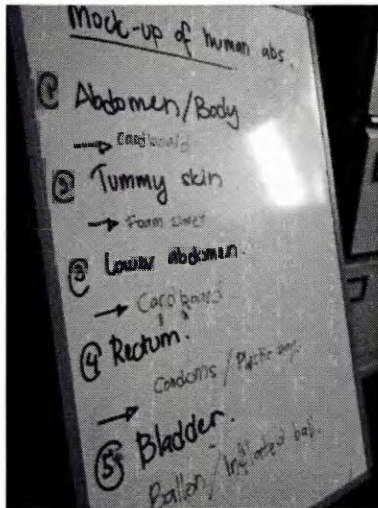 Mock-up of human abs.
① Abdomen/Body
→ Cardboard
② Tummy skin
→ Foam sheet
③ Lower abdomen.
→ Cardboard
④ Rectum.
→ Condoms / Plastic bags
⑤ Bladder.
Ballon / Inflated ball.